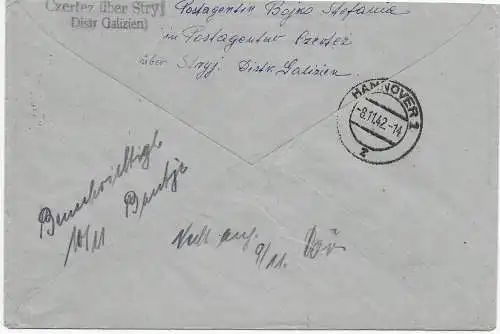 Czertez über Stryj
Distr Galizien)
Postagentin Bojko Stefania
in Postagentur Czertez
über Stryj. Distr. Galizien.
HANNOVER 1
-8.11.42.-14
z
Benachrichtigt
10/11
9/11.